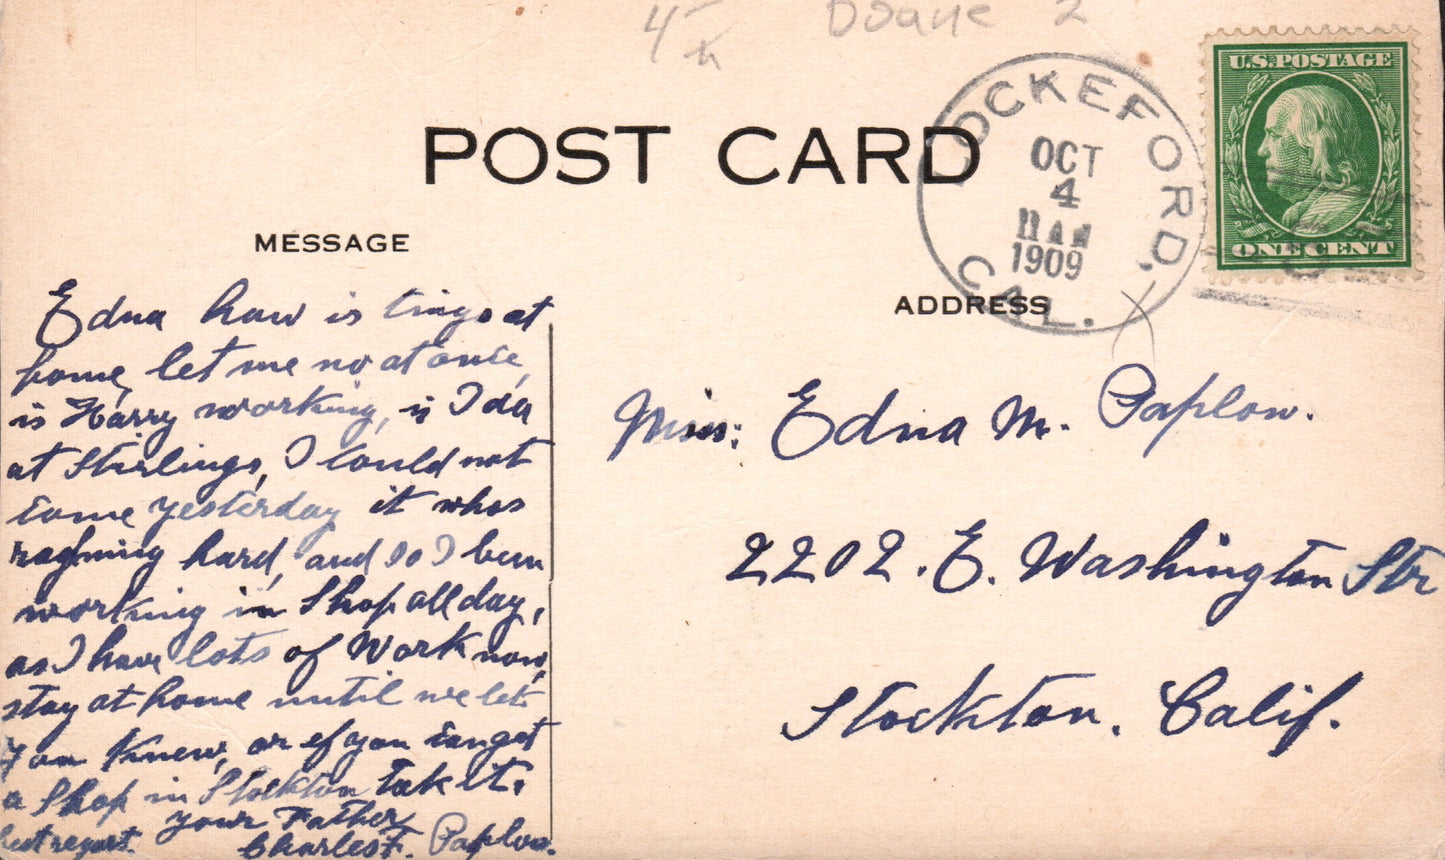 Doane 2
POST CARD
LOCKEFORD, CAL.
OCT
4
11 AM
1909
U.S. POSTAGE
ONE CENT
MESSAGE
ADDRESS
Edna how is tings at
home, let me no at once,
is Harry working, is Ida
at Stirlings, I could not
come yesterday it whos
raghning hard, and so I been
working in Shop all day,
as I have lots of Work now,
stay at home until we let
you Knew, or ef you can get
a Shop in Stockton take it.
best regart. your Father
Charles F. Paplow.
Miss: Edna M. Paplow.
2202. E. Washington Str
Stockton. Calif.